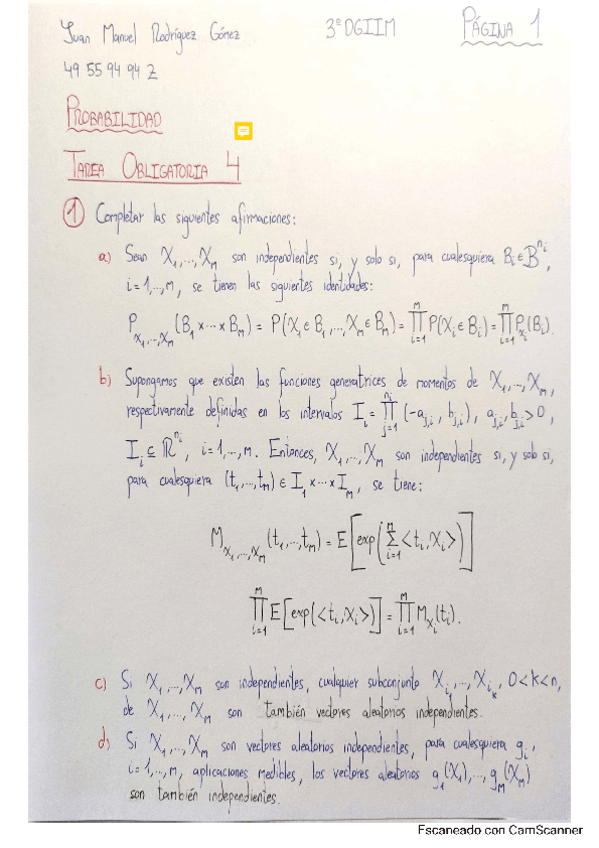 Juan Manuel Rodríguez Gómez 3º DGIIM PÁGINA 1
49 55 94 94 Z
PROBABILIDAD
TAREA OBLIGATORIA 4
① Completar las siguientes afirmaciones:
a) Sean X₁,...,Xₘ son independientes si, y solo si, para cualesquiera Bᵢ ∈ B^{nᵢ},
i=1,...,m, se tienen las siguientes identidades:
P_{X₁,...,Xₘ}(B₁×···×Bₘ) = P(X₁∈B₁,...,Xₘ∈Bₘ) = ∏_{i=1}^{m} P(Xᵢ∈Bᵢ) = ∏_{i=1}^{m} P_{Xᵢ}(Bᵢ).
b) Supongamos que existen las funciones generatrices de momentos de X₁,...,Xₘ,
respectivamente definidas en los intervalos Iᵢ = ∏_{j=1}^{nᵢ} (-a_{j,i}, b_{j,i}), a_{j,i}, b_{j,i} > 0,
Iᵢ ⊆ ℝ^{nᵢ}, i=1,...,m. Entonces, X₁,...,Xₘ son independientes si, y solo si,
para cualesquiera (t₁,...,tₘ) ∈ I₁×···×Iₘ, se tiene:
M_{X₁,...,Xₘ}(t₁,...,tₘ) = E[exp(∑_{i=1}^{m} <tᵢ,Xᵢ>)]
∏_{i=1}^{m} E[exp(<tᵢ,Xᵢ>)] = ∏_{i=1}^{m} M_{Xᵢ}(tᵢ).
c) Si X₁,...,Xₘ son independientes, cualquier subconjunto X_{i₁},...,X_{iₖ}, 0<k<n,
de X₁,...,Xₘ son también vectores aleatorios independientes.
d) Si X₁,...,Xₘ son vectores aleatorios independientes, para cualesquiera gᵢ,
i=1,...,m, aplicaciones medibles, los vectores aleatorios g₁(X₁),...,gₘ(Xₘ)
son también independientes.
Escaneado con CamScanner